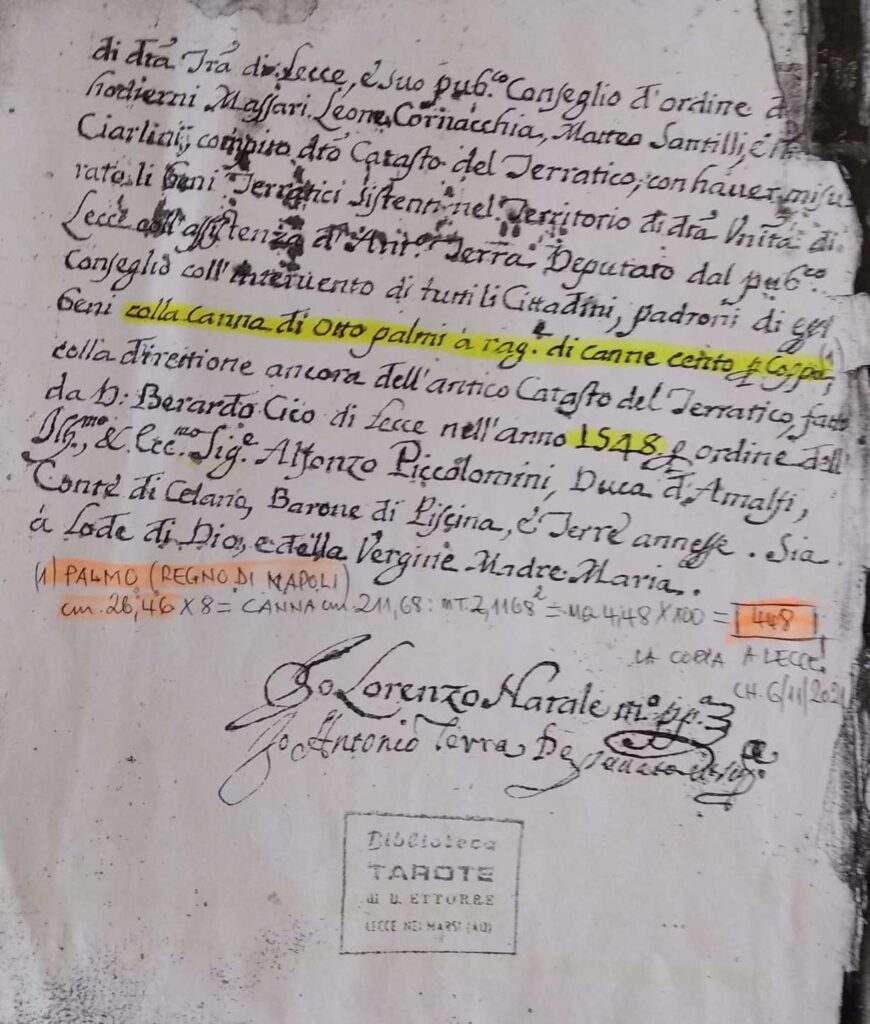 di dtã Trã di Lecce, e suo pub.co Conseglio d'ordine d
hodierni Massari Leone Cornacchia, Matteo Santilli, e
Ciarlini, compiro dtõ Catasto del Terratico, con haver misu
rato li Beni Terratici sistenti nel Territorio di dtã Vnità di
Lecce coll'assistenza d'Ant.o Terra Deputato dal pub.co
Conseglio coll'intervento di tutti li Cittadini, padroni di
beni colla Canna di Otto palmi à rag.e di canne cento p Coppa, (1)
colla direttione ancora dell'antico Catasto del Terratico, fatto
da D: Berardo Cico di Lecce nell'anno 1548 p ordine dell'
Ill.mo, & Ecc.mo Sig.e Alfonzo Piccolomini, Duca d'Amalfi,
Conte di Celano, Barone di Piscina, e Terre annesse. Sia
à Lode di Dio, e della Vergine Madre Maria.
(1) PALMO (REGNO DI NAPOLI)
cm. 26,46 X 8 = CANNA cm. 211,68: MT. 2,1168² = MQ 4,48 X 100 = 448
LA COPPA A LECCE!
CH. 6/11/2021
Io Lorenzo Natale m.o pp.a
Io Antonio Terra De
Biblioteca
TAROTE
di D. ETTORRE
LECCE NEI MARSI (AQ)